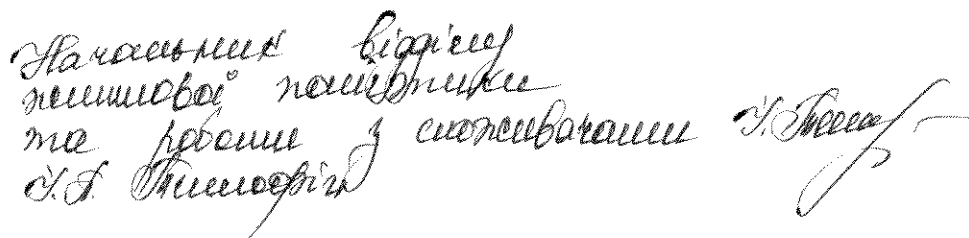 Начальник відділу
житлової політики
та роботи з споживачами